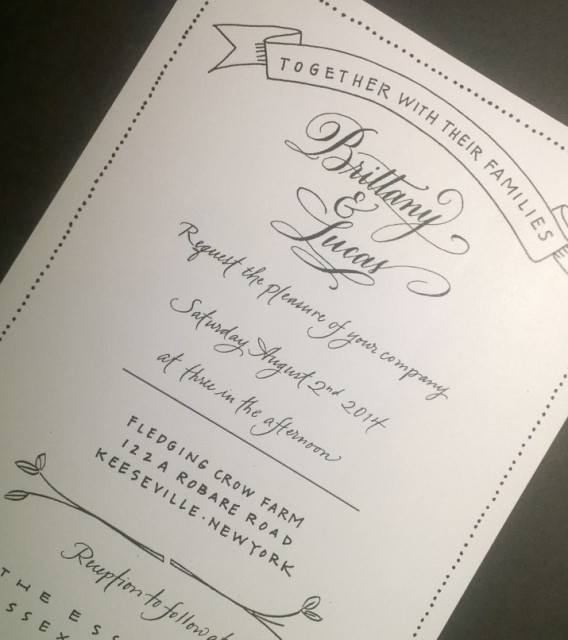 TOGETHER WITH THEIR FAMILIES
Brittany
&
Lucas
Request the pleasure of your company
Saturday August 2nd 2014
at three in the afternoon
FLEDGING CROW FARM
122 A ROBARE ROAD
KEESEVILLE · NEWYORK
Reception to follow at
THE